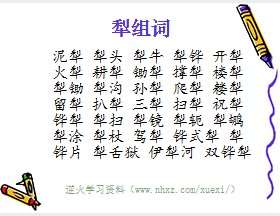 犁组词
泥犁 犁头 犁牛 犁铧 开犁
火犁 耕犁 锄犁 撑犁 楼犁
犁锄 犁沟 孙犁 爬犁 耧犁
留犁 扒犁 三犁 扫犁 祝犁
铧犁 犁扫 犁镜 犁轭 犁鶘
犁涂 犁杖 驾犁 铧式犁 犁
铧片 犁舌狱 伊犁河 双铧犁
逆火学习资料（www.nhxz.com/xuexi/）